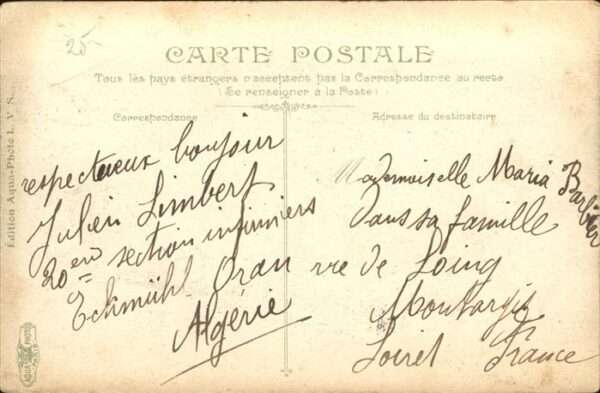 25
CARTE POSTALE
Tous les pays étrangers n'acceptent pas la Correspondance au recto
(Se renseigner à la Poste)
Correspondance
Adresse du destinataire
respectueux bonjour
Julien Limbert
20eme section infirmiers
Eckmühl Oran
Algérie
Mademoiselle Maria Barbier
Dans sa famille
rue de Loing
Montargis
Loiret France
Edition Aqua-Photo L. V. S.
AQUA PHOTO
PARIS